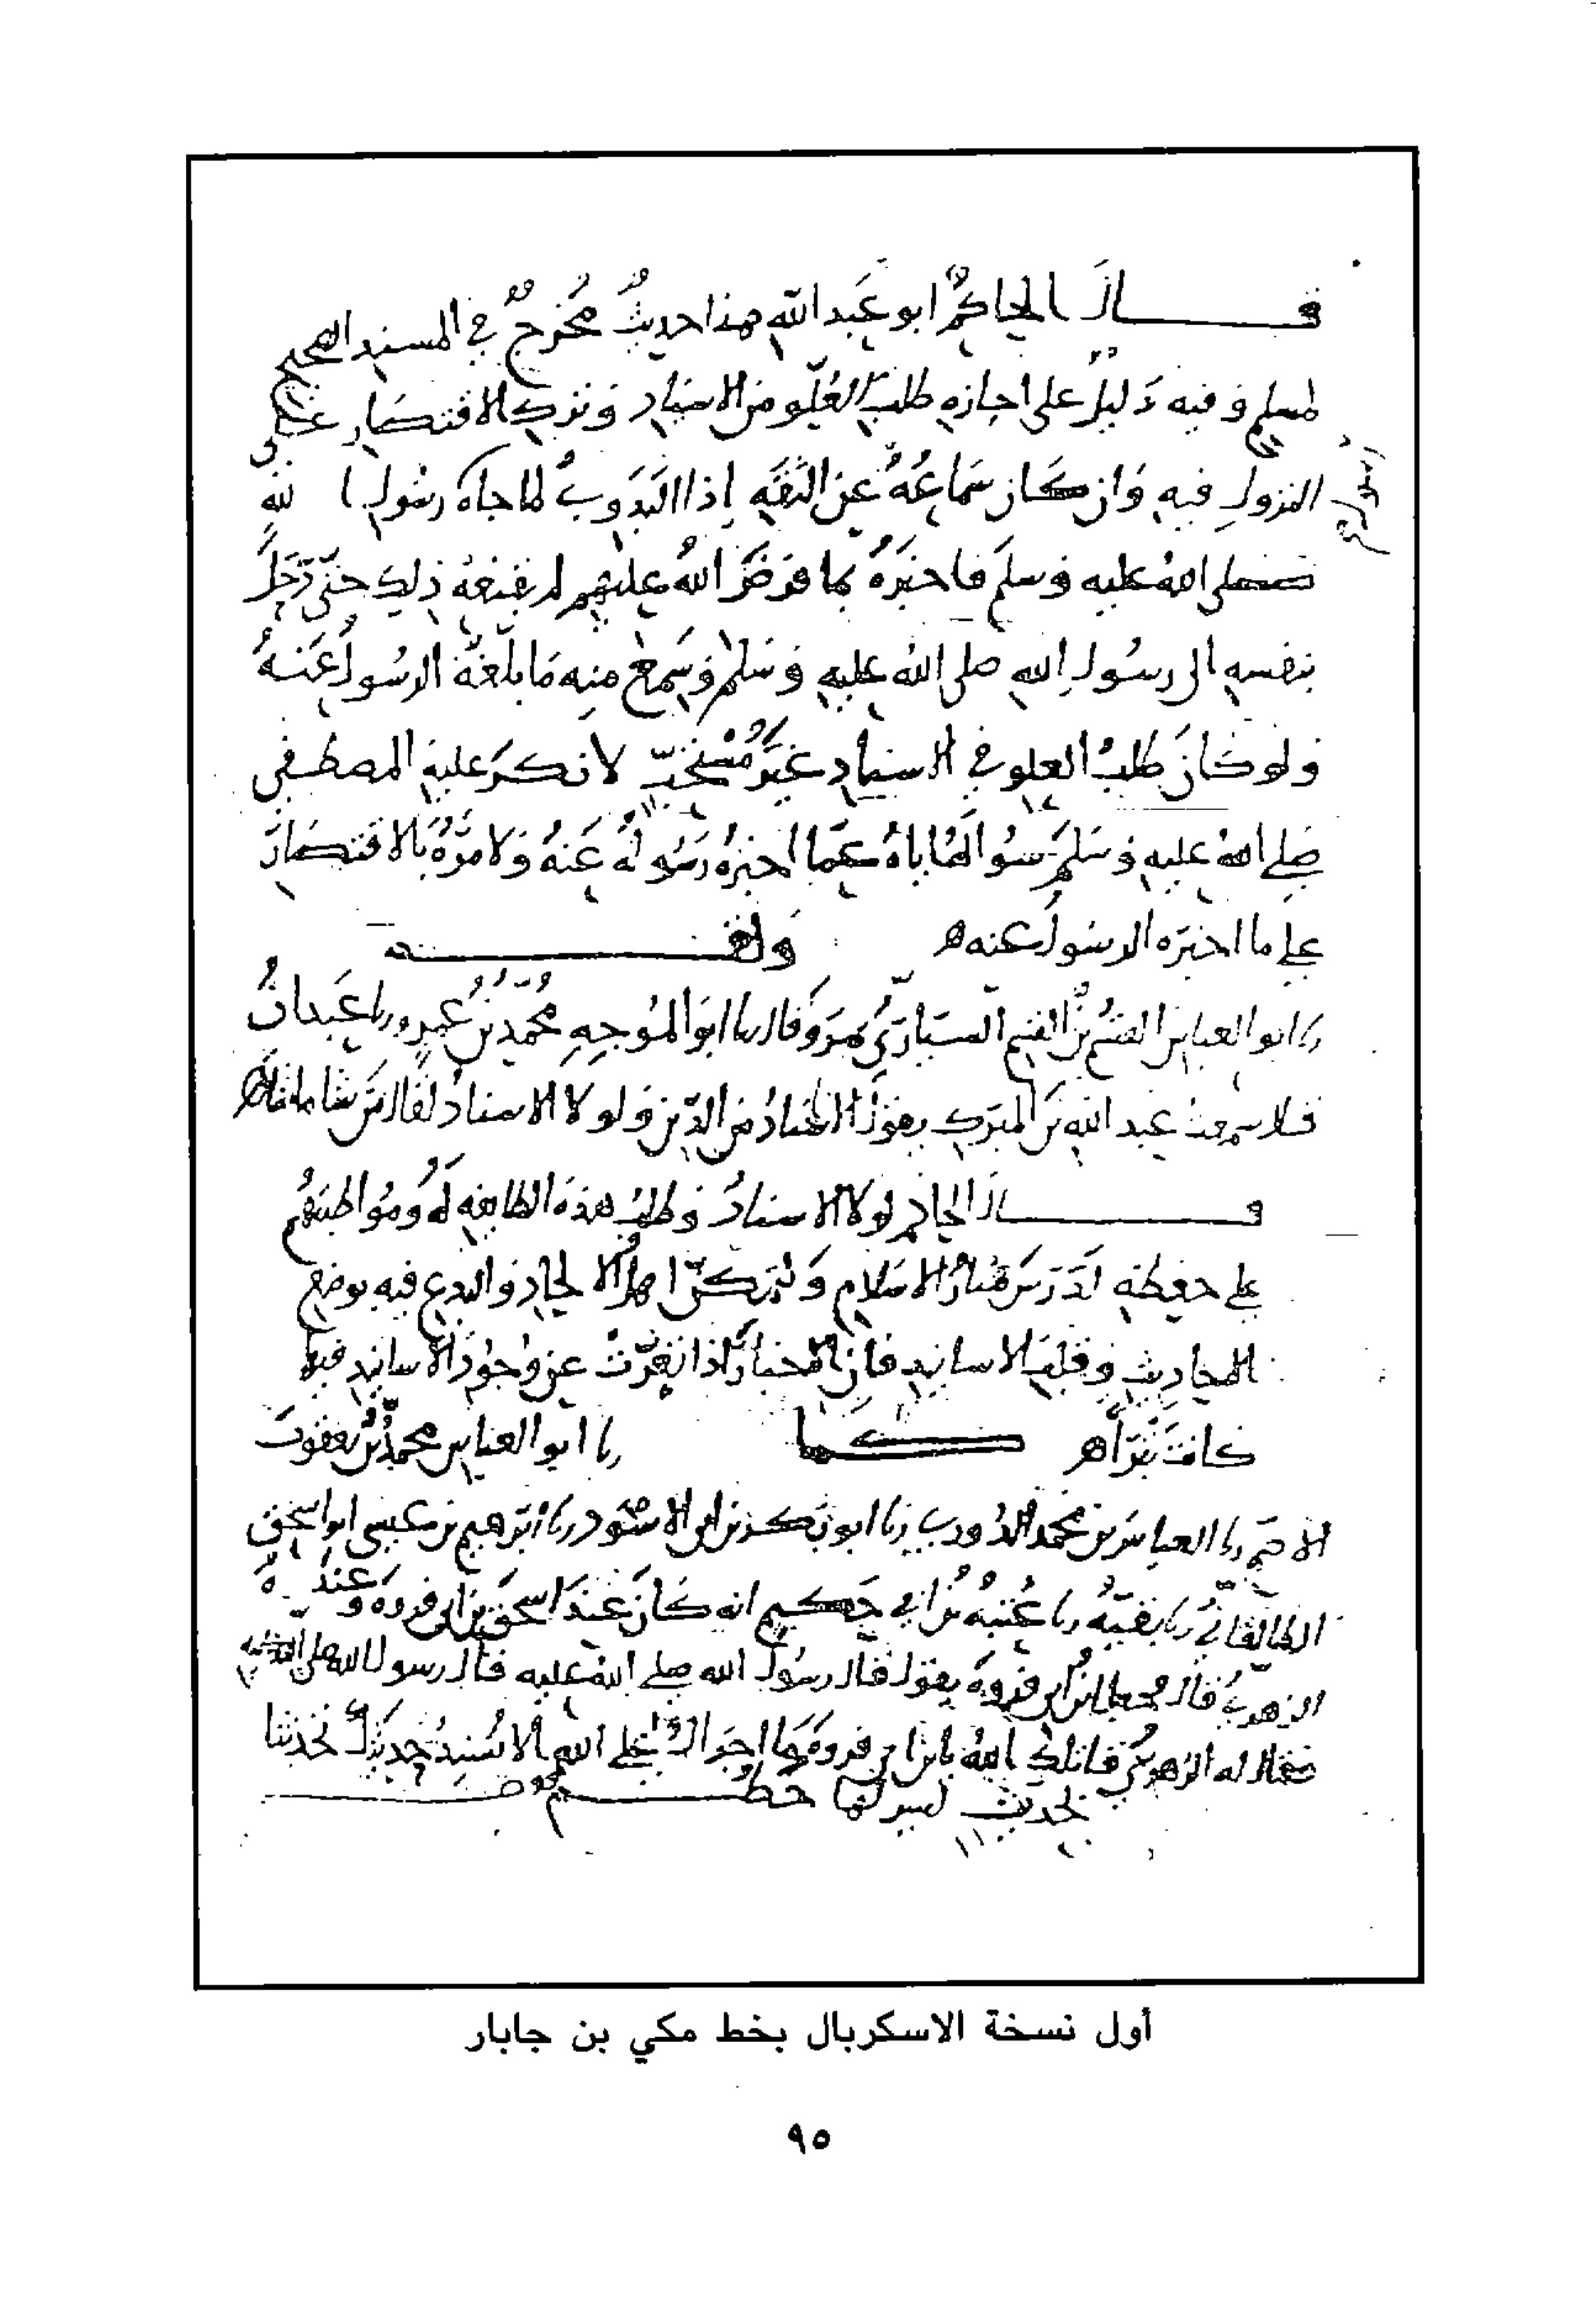 قــال الحاكم ابو عبد الله هذا حديث مخرج في المسند الصحيح
لمسلم وفيه دليل على اجازه طلب العلو من الاسناد وترك الاقتصار على
النزول فيه وان كان سماعه عن الثقه اذ البدوي لما جاه رسول الله
صلى الله عليه وسلم فاخبره بما فرض الله عليهم لم يقنعه ذلك حتى رحل
بنفسه الى رسول الله صلى الله عليه وسلم وسمع منه ما بلغه الرسول عنه
ولو كان طلب العلو في الاسناد غير مستحب لانكر عليه المصطفى
صلى الله عليه وسلم سواله اياه عما اخبره رسوله عنه ولامره بالاقتصار
على ما اخبره الرسول عنه ولقــد
نا ابو العباس القسم بن القسم السياري بمرو قال نا ابو الموجه محمد بن عمرو نا عبدان
قال سمعت عبد الله بن المبرك يقول الاسناد من الدين ولولا الاسناد لقال من شا ما شا
قــال الحاكم لولا الاسناد وطلب هذه الطايفه له ومواظبتهم
على حفظه لدرس منار الاسلام ولتمكن اهل الالحاد والبدع فيه بوضع
الاحاديث وقلب الاسانيد فان الاخبار اذا تعرت عن وجود الاسانيد فيها
كانت بترا كــما نا ابو العباس محمد بن يعقوب
الاصم نا العباس بن محمد الدوري نا ابو بكر بن ابي الاسود نا ابرهيم بن عيسى ابو اسحق
الطالقاني نا بقيه نا عتبه بن ابي حكيم انه كان عند اسحق بن ابي فروه وعنده
الزهري قال فجعل ابن ابي فروه يقول قال رسول الله صلى الله عليه قال رسول الله صلى الله عليه
فقال له الزهري قاتلك الله يا بن ابي فروه ما اجراك على الله الا تسند حديثك تحدثنا
بحديث ليس لها خطم
أول نسخة الاسكربال بخط مكي بن جابار
٩٥